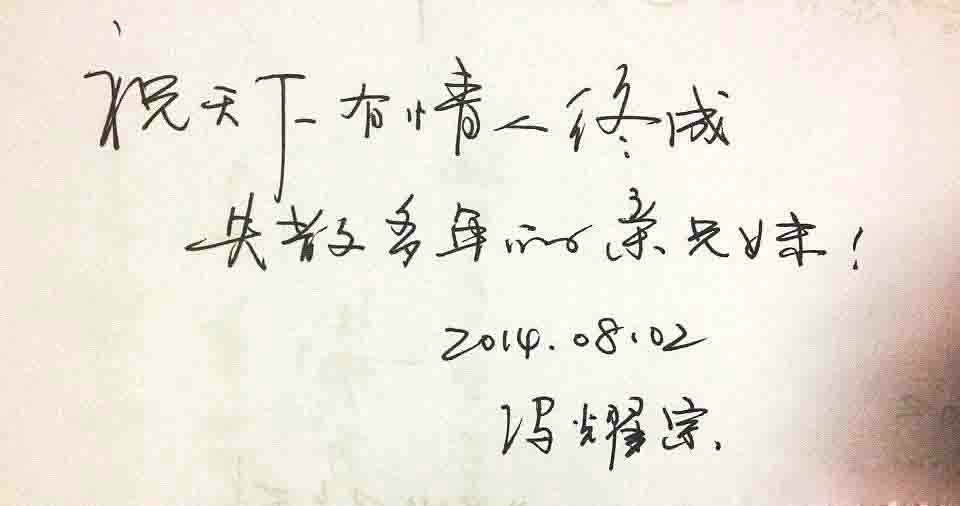 祝天下有情人终成
失散多年的亲兄妹！
2014.08.02
冯耀宗.